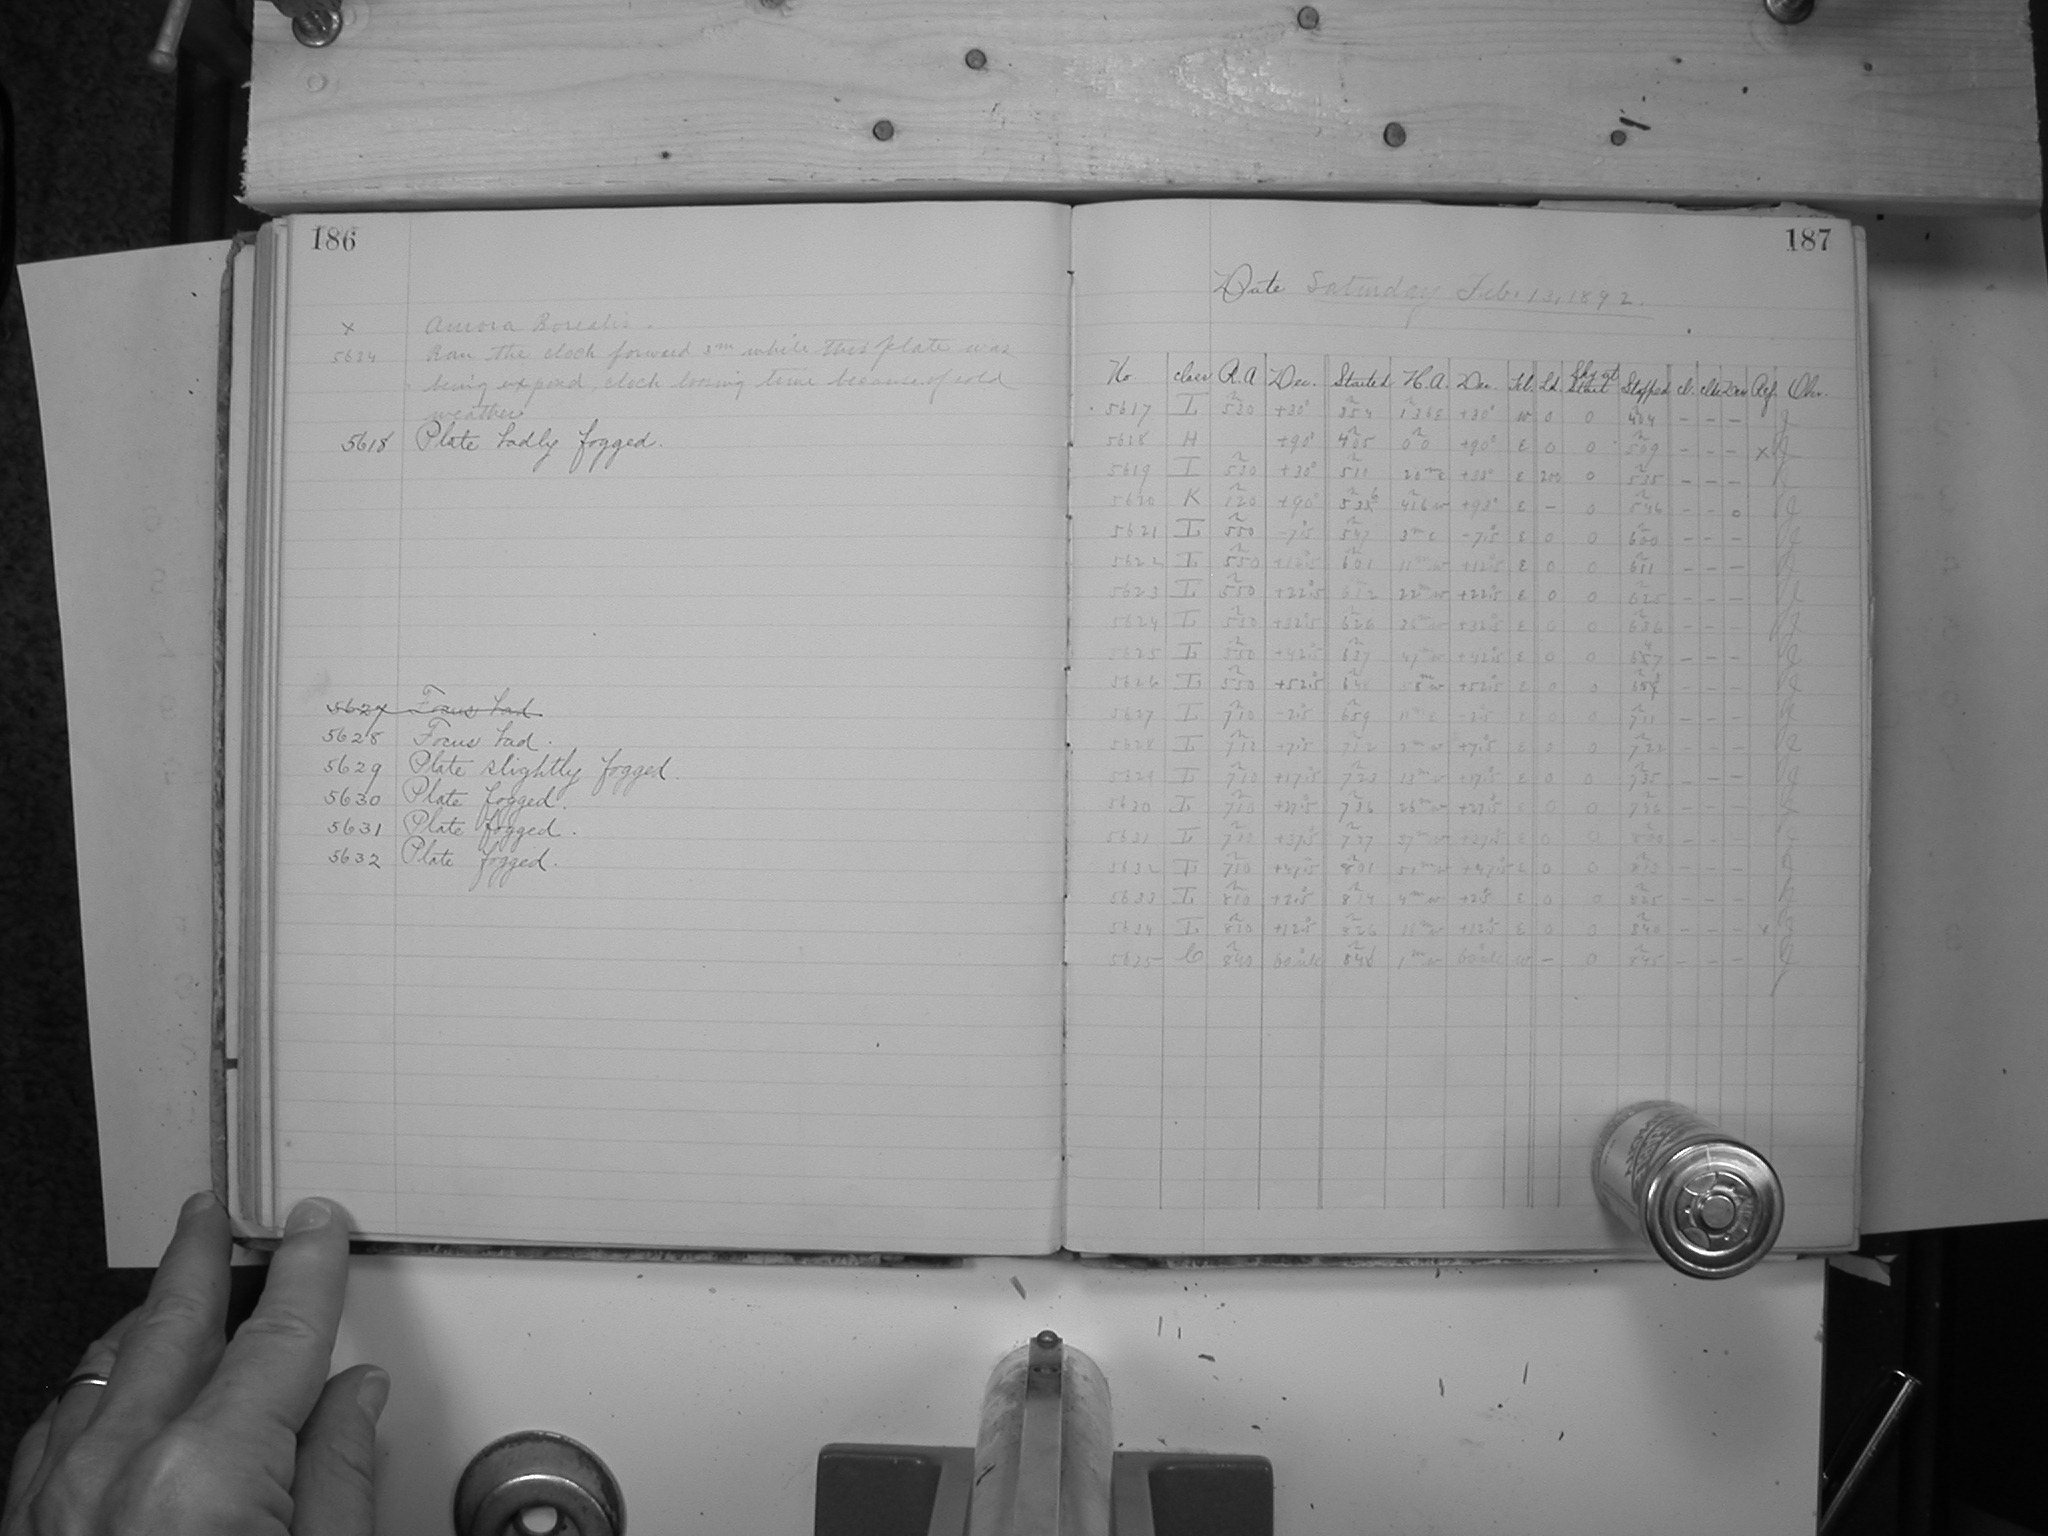 186
× Aurora Borealis.
5634 Ran the clock forward 3m while this plate was
being expond, clock loosing time because of cold
weather
5618 Plate badly fogged.
5627 Focus bad
5628 Focus bad.
5629 Plate slightly fogged.
5630 Plate fogged.
5631 Plate fogged.
5632 Plate fogged.
187
Date Saturday Feb. 13, 1892.
No. class R.A Dec. Started H.A. Dec. Tel. Ld. Sky at Start Stopped Obs.
5617 L 5h30 +30° 3h54 1h36E +30° W 0 0 4h04 - - -
5618 H +90° 4h05 0h0 +90° E 0 0 5h09 - - - ×
5619 I 5h30 +30° 20m E E 0 5h35 - - -
5620 K 1h20 +90° 4h16w E - 0 5h46 - - 0
5621 L 5h50 -7°.5 5h47 3m E -7°.5 E 0 0 6h00 - - -
5622 L 5h50 +12°.5 6h01 11m w +12°.5 E 0 0 6h11 - - -
5623 L 5h50 +22°.5 6h12 22m w +22°.5 E 0 0 6h25 - - -
5624 L 5h50 +32°.5 6h26 36m w +32°.5 E 0 0 6h36 - - -
5625 L 5h50 +42°.5 6h37 47m w +42°.5 E 0 0 - - -
5626 L 5h50 +52°.5 58m w +52°.5 E 0 0 - - -
5627 L 7h10 -2°.5 6h59 11m E -2°.5 E 0 0 7h11 - - -
5628 L 7h10 +7°.5 7h12 2m w +7°.5 E 0 0 7h22 - - -
5629 L 7h10 +17°.5 7h23 13m w +17°.5 E 0 0 7h35 - - -
5630 L 7h10 +27°.5 7h36 26m w +27°.5 E 0 0 7h46 - - -
5631 L 7h10 +37°.5 7h47 37m w +37°.5 E 0 0 8h00 - - -
5632 L 7h10 +47°.5 8h01 51m w +47°.5 E 0 0 8h13 - - -
5633 L 8h10 +2°.5 8h14 4m w +2°.5 E 0 0 8h25 - - -
5634 L 8h10 +12°.5 8h26 16m w +12°.5 E 0 0 8h40 - - - ×
5635 C 8h40 1m w w - 0 8h45 - - -